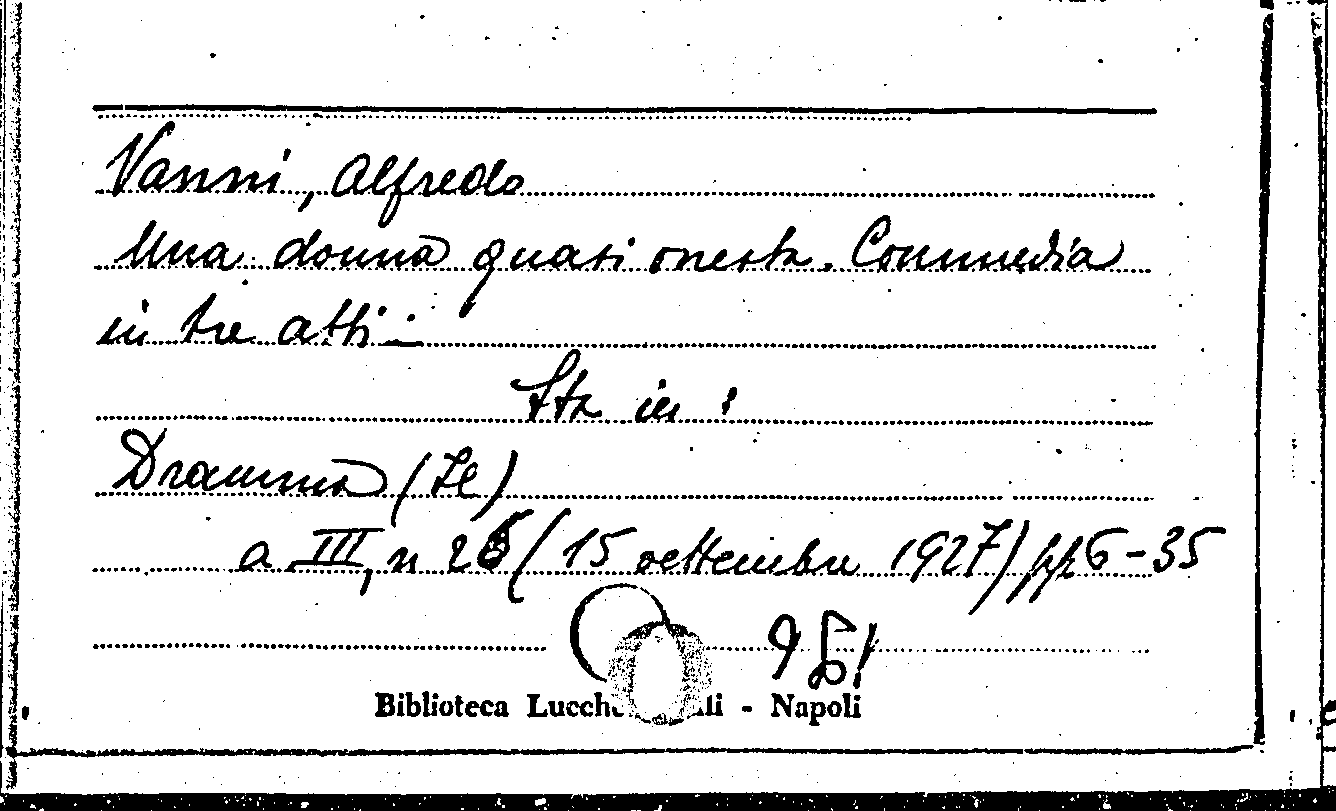 Vanni, Alfredo
Una donna quasi onesta. Commedia
in tre atti.-
Sta in :
Dramma (Il)
a III, n 26 (15 settembre 1927) pp 6-35
Biblioteca - Napoli